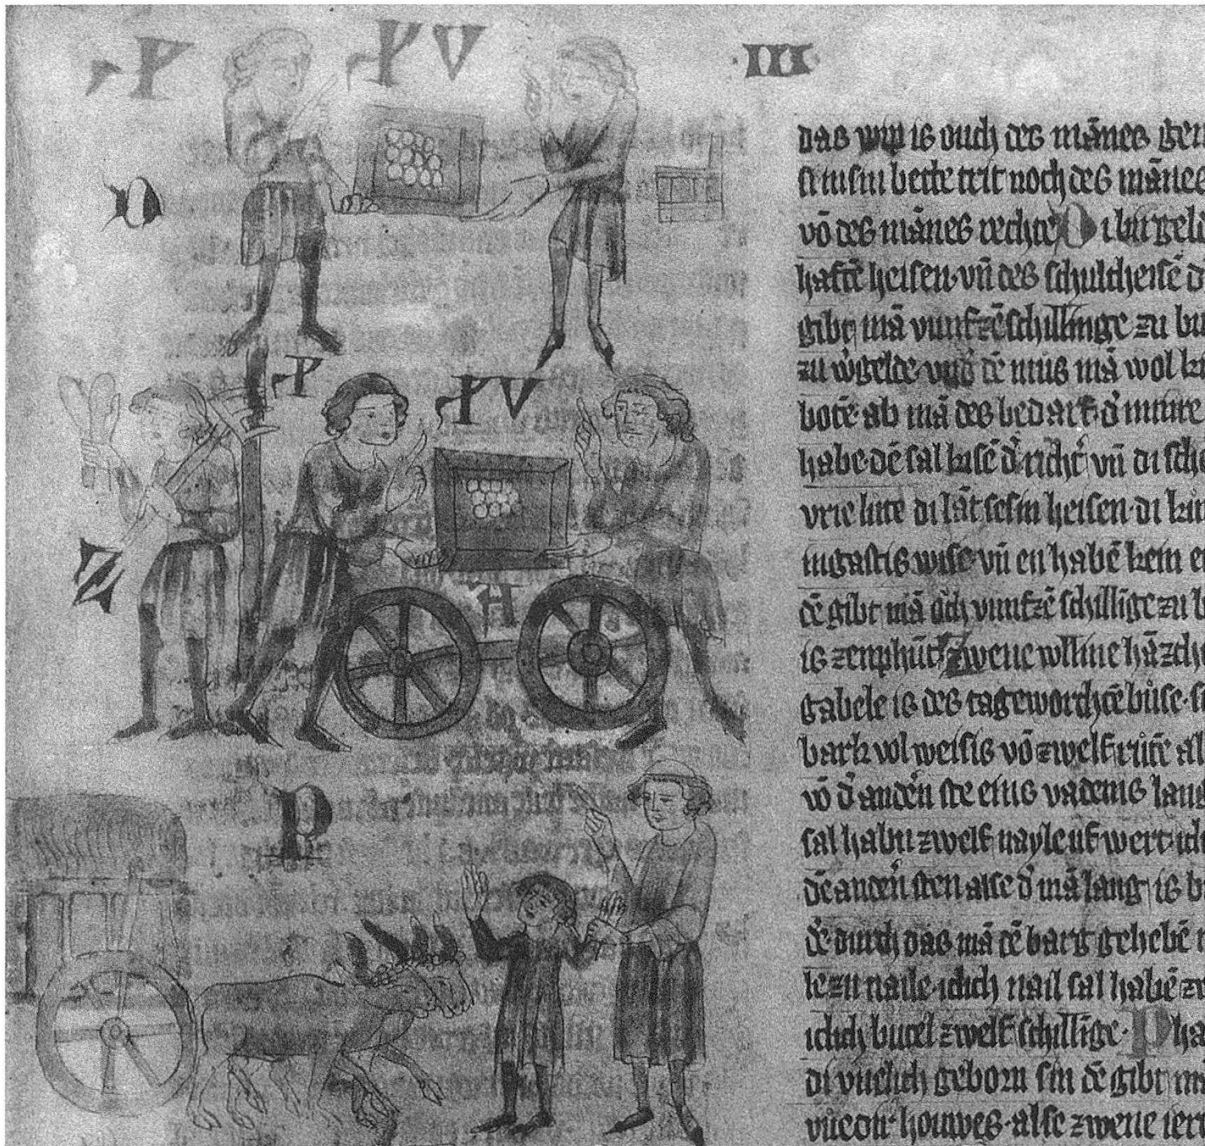 P PV III
D
P PV
Z
H
P
das wip is ouch des mānes gen
vō des mānes rechte D i bir geld
haftē heisen vn̄ des schulcheisē d
gibt mā vunfzē schillinge zu bu
zu w̓gelde vn̄d̓ dē mus mā wol k
botē ab mā des bedarf d̓
habe dē sal kisē d̓ richt̓ vn̄ di sch
vrie lute di lāt sesin heisen di kū
ingastis wise vn̄ en habē kein e
dē gibt mā ouch vunfzē schillīge zu b
is zenphūt Zwene wlline hāzch
gabele is des tageworchtē buse s
bark vol weisis vō zwelf rutē al
vō d̓ andēn ste eins vadems lang
sal habn zwelf nayle uf wert
dē andēn sten alse d̓ mā lang is b
dē durch das mā dē barg gehebē
le zu naile iclich nail sal habē zw
iclich butel zwelf schillīge P ha
di vnelich geborn sin dē gibt m
vucdir houwes alse zwene ier